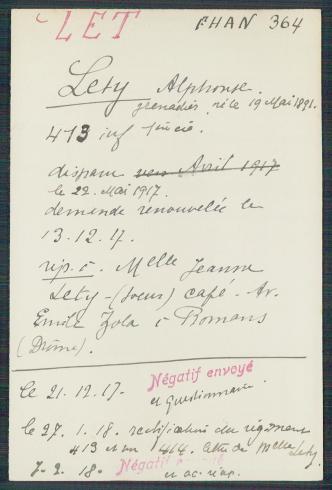 LET
FHAN 364
Lety Alphonse.
grenadier, né le 19 Mai 1891.
413 inf
disparu vers Avril 1917
le 22. Mai 1917.
demande renouvelée le
13.12.17.
rép. à. Melle Jeanne
Lety - (soeur) café - Av.
Emile Zola à Romans
(Drôme).
le 21.12.17. Négatif envoyé
et questionnaire.
le 27.1.18. rectification du régiment
413 et non 414. lettre de Melle Lety.
7-2.18- Négatif envoyé
et ac.